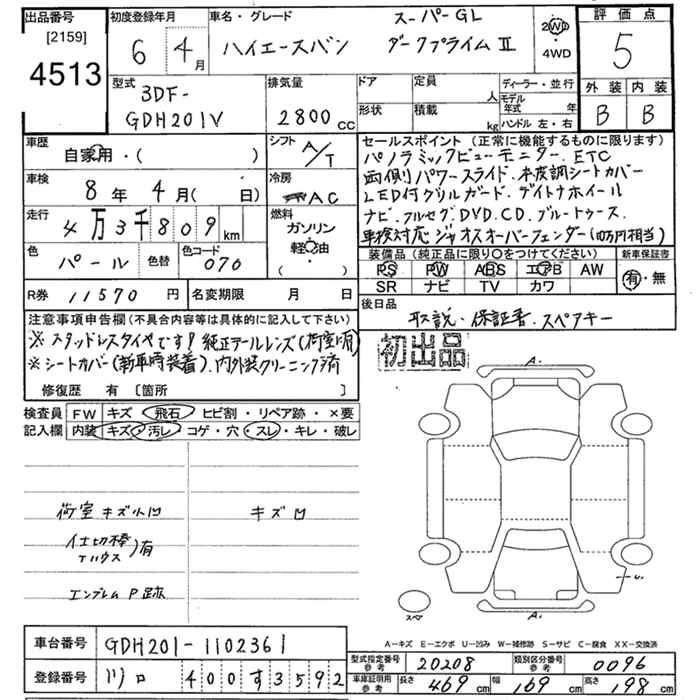 出品番号
[2159]
4513
初度登録年月
6 4月
車名・グレード
スーパーGL
ハイエースバン ダークプライムⅡ
2WD
・
4WD
評価点
5
外装 内装
B B
型式
3DF-
GDH201V
排気量
2800cc
ドア 定員 人
形状 積載 kg
ディーラー・並行
モデル年式 年
ハンドル 左・右
車歴
自家用・( )
シフト A/T
車検
8年 4月( 日)
冷房 AC
走行
4万3千809km
燃料
ガソリン
軽油
・( )
色
パール
色替
色コード
070
R券 11570円
名変期限 月 日
セールスポイント (正常に機能するものに限ります)
パノラミックビューモニター.ETC
両側パワースライド.本皮調シートカバー
LED付グリルガード.デイトナホイール
ナビ.フルセグ.DVD.CD.ブルートゥース.
車検対応ジャオスオーバーフェンダー(10万円相当)
装備品(純正品に限り○をつけてください)
PS PW ABS エアB AW
SR ナビ TV カワ
新車保証書
有・無
後日品
取説・保証書.スペアキー
注意事項申告欄(不具合内容等は具体的に記入して下さい)
※スタッドレスタイヤです!純正アールレンズ(荷室に有)
※シートカバー(新車時装着).内外装クリーニング済
修復歴 有 〔箇所 〕
初出品
検査員
記入欄
FW キズ・飛石・ヒビ割・リペア跡・×要
内装 キズ・汚レ・コゲ・穴・スレ・キレ・破レ
荷室 キズ小凹
キズ凹
仕切棒
エルウス)有
エンブレム P跡
A.
スペア
A.
A-キズ E-エクボ U-凹み W-補修跡 S-サビ C-腐食 XX-交換済
車台番号 GDH201-1102361
登録番号 川口 400 す 3592
型式指定番号 参考 20208
類別区分番号 参考 0096
車庫証明用 参考 長さ 469cm 幅 169cm 高さ 198cm